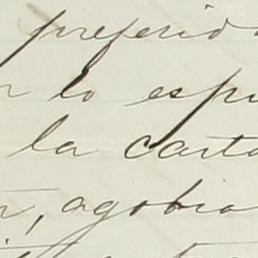 preferido
lo espi
la carta
, agobia